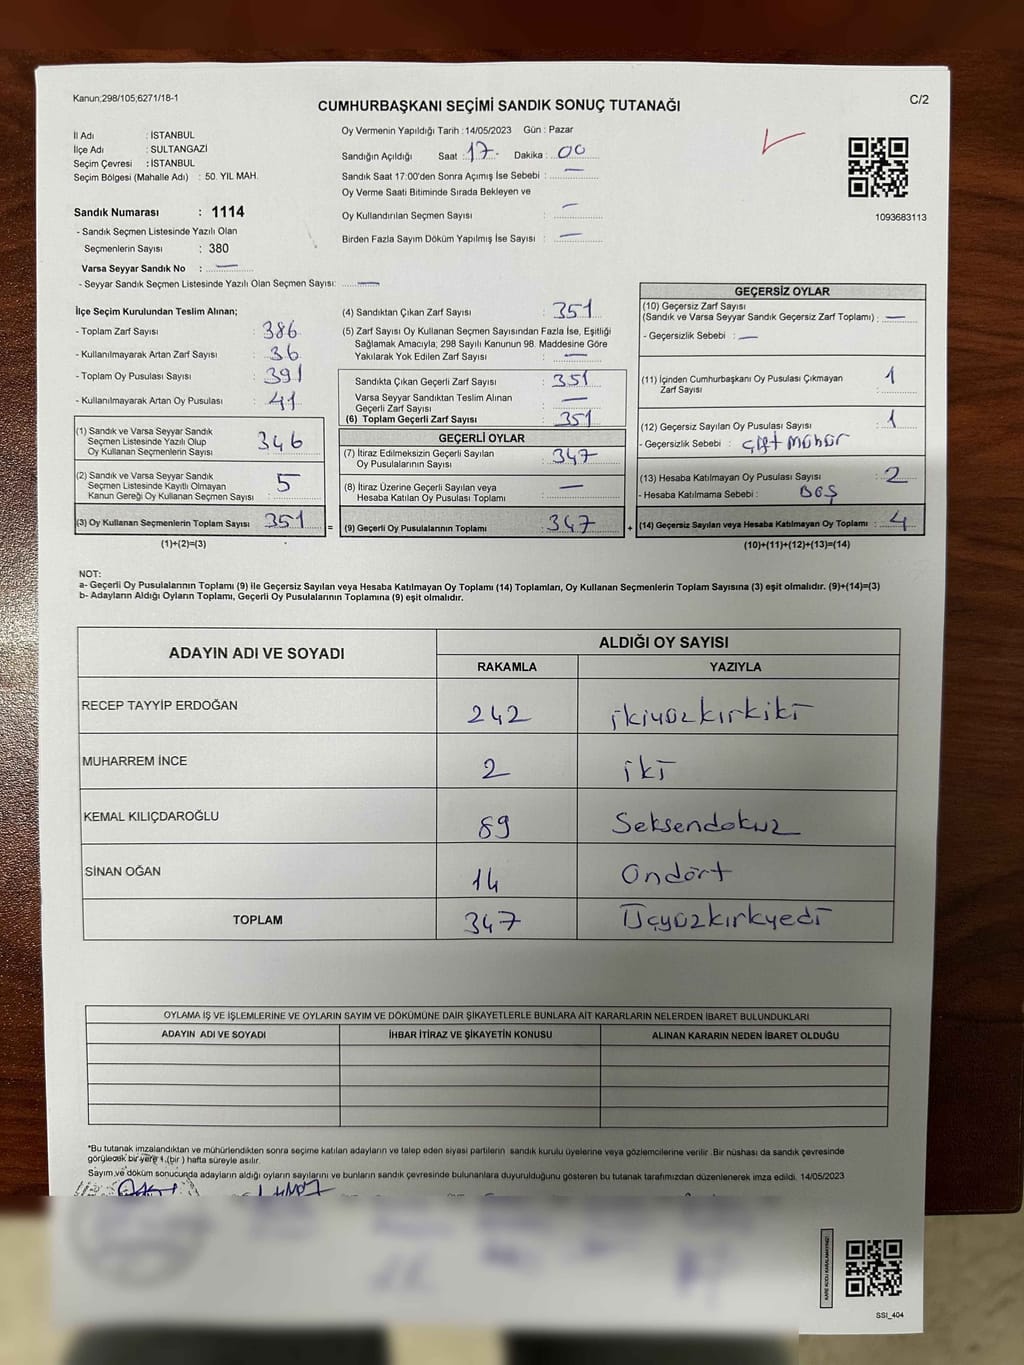 Kanun;298/105;6271/18-1
C/2
CUMHURBAŞKANI SEÇİMİ SANDIK SONUÇ TUTANAĞI
İl Adı : İSTANBUL
İlçe Adı : SULTANGAZİ
Seçim Çevresi : İSTANBUL
Seçim Bölgesi (Mahalle Adı) : 50. YIL MAH.
Sandık Numarası : 1114
- Sandık Seçmen Listesinde Yazılı Olan
Seçmenlerin Sayısı : 380
Varsa Seyyar Sandık No : —
- Seyyar Sandık Seçmen Listesinde Yazılı Olan Seçmen Sayısı: —
Oy Vermenin Yapıldığı Tarih : 14/05/2023 Gün : Pazar
Sandığın Açıldığı Saat : 17 Dakika : 00
Sandık Saat 17:00'den Sonra Açımış İse Sebebi : —
Oy Verme Saati Bitiminde Sırada Bekleyen ve
Oy Kullandırılan Seçmen Sayısı : —
Birden Fazla Sayım Döküm Yapılmış İse Sayısı : —
1093683113
İlçe Seçim Kurulundan Teslim Alınan;
- Toplam Zarf Sayısı : 386
- Kullanılmayarak Artan Zarf Sayısı : 36
- Toplam Oy Pusulası Sayısı : 391
- Kullanılmayarak Artan Oy Pusulası : 41
(1) Sandık ve Varsa Seyyar Sandık
Seçmen Listesinde Yazılı Olup
Oy Kullanan Seçmenlerin Sayısı : 346
(2) Sandık ve Varsa Seyyar Sandık
Seçmen Listesinde Kayıtlı Olmayan
Kanun Gereği Oy Kullanan Seçmen Sayısı : 5
(3) Oy Kullanan Seçmenlerin Toplam Sayısı : 351 =
(1)+(2)=(3)
(4) Sandıktan Çıkan Zarf Sayısı : 351
(5) Zarf Sayısı Oy Kullanan Seçmen Sayısından Fazla İse, Eşitliği
Sağlamak Amacıyla; 298 Sayılı Kanunun 98. Maddesine Göre
Yakılarak Yok Edilen Zarf Sayısı : —
Sandıkta Çıkan Geçerli Zarf Sayısı : 351
Varsa Seyyar Sandıktan Teslim Alınan
Geçerli Zarf Sayısı : —
(6) Toplam Geçerli Zarf Sayısı : 351
GEÇERLİ OYLAR
(7) İtiraz Edilmeksizin Geçerli Sayılan
Oy Pusulalarının Sayısı : 347
(8) İtiraz Üzerine Geçerli Sayılan veya
Hesaba Katılan Oy Pusulası Toplamı : —
(9) Geçerli Oy Pusulalarının Toplamı : 347 +
GEÇERSİZ OYLAR
(10) Geçersiz Zarf Sayısı
(Sandık ve Varsa Seyyar Sandık Geçersiz Zarf Toplamı) : —
- Geçersizlik Sebebi : —
(11) İçinden Cumhurbaşkanı Oy Pusulası Çıkmayan
Zarf Sayısı : 1
(12) Geçersiz Sayılan Oy Pusulası Sayısı : 1
- Geçersizlik Sebebi : çift mühür
(13) Hesaba Katılmayan Oy Pusulası Sayısı : 2
- Hesaba Katılmama Sebebi : BOŞ
(14) Geçersiz Sayılan veya Hesaba Katılmayan Oy Toplamı : 4
(10)+(11)+(12)+(13)=(14)
NOT:
a- Geçerli Oy Pusulalarının Toplamı (9) ile Geçersiz Sayılan veya Hesaba Katılmayan Oy Toplamı (14) Toplamları, Oy Kullanan Seçmenlerin Toplam Sayısına (3) eşit olmalıdır. (9)+(14)=(3)
b- Adayların Aldığı Oyların Toplamı, Geçerli Oy Pusulalarının Toplamına (9) eşit olmalıdır.
ADAYIN ADI VE SOYADI
ALDIĞI OY SAYISI
RAKAMLA YAZIYLA
RECEP TAYYİP ERDOĞAN 242 ikiyüzkırkiki
MUHARREM İNCE 2 iki
KEMAL KILIÇDAROĞLU 89 Seksendokuz
SİNAN OĞAN 14 Ondört
TOPLAM 347 Üçyüzkırkyedi
OYLAMA İŞ VE İŞLEMLERİNE VE OYLARIN SAYIM VE DÖKÜMÜNE DAİR ŞİKAYETLERLE BUNLARA AİT KARARLARIN NELERDEN İBARET BULUNDUKLARI
ADAYIN ADI VE SOYADI İHBAR İTİRAZ VE ŞİKAYETİN KONUSU ALINAN KARARIN NEDEN İBARET OLDUĞU
*Bu tutanak imzalandıktan ve mühürlendikten sonra seçime katılan adayların ve talep eden siyasi partilerin sandık kurulu üyelerine veya gözlemcilerine verilir. Bir nüshası da sandık çevresinde
görülecek bir yere 1 (bir ) hafta süreyle asılır.
Sayım ve döküm sonucunda adayların aldığı oyların sayılarını ve bunların sandık çevresinde bulunanlara duyurulduğunu gösteren bu tutanak tarafımızdan düzenlenerek imza edildi. 14/05/2023
KARE KODU KARALAMAYINIZ!
SSI_404